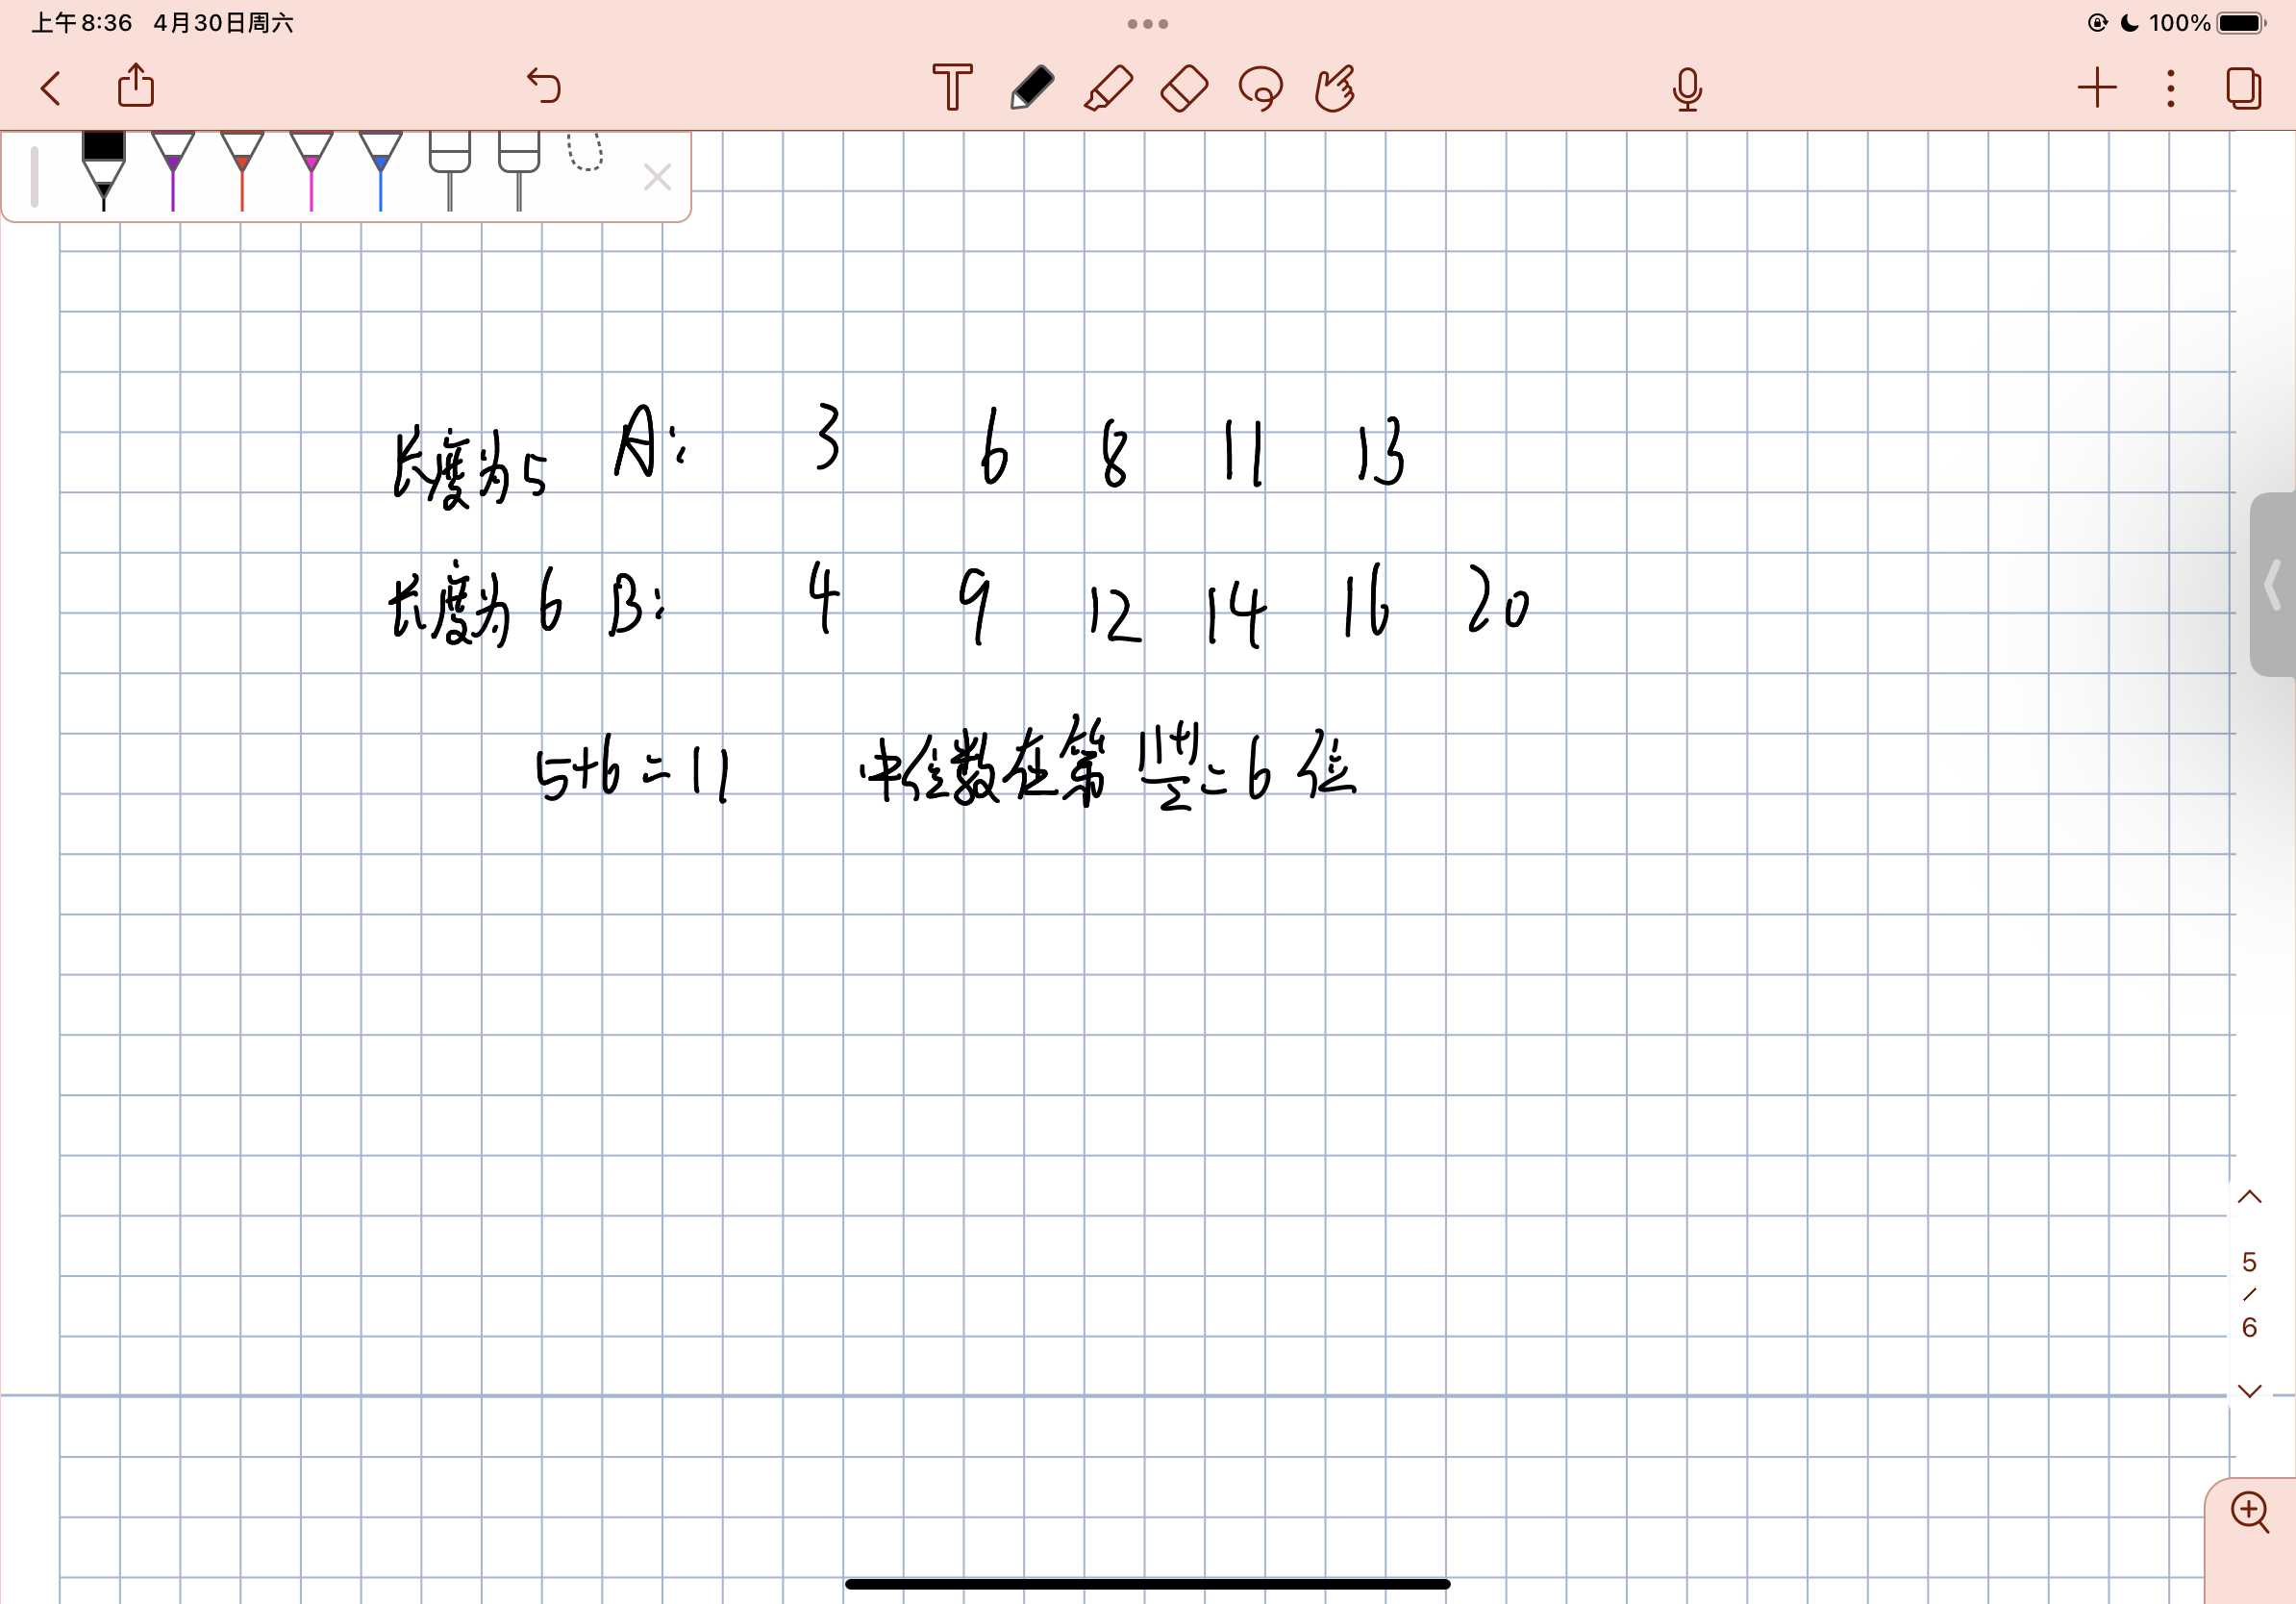 上午8:36 4月30日周六
100%
长度为5 A: 3 6 8 11 13
长度为6 B: 4 9 12 14 16 20
5+6=11 中位数在第 (11+1)/2=6 位
5
/
6